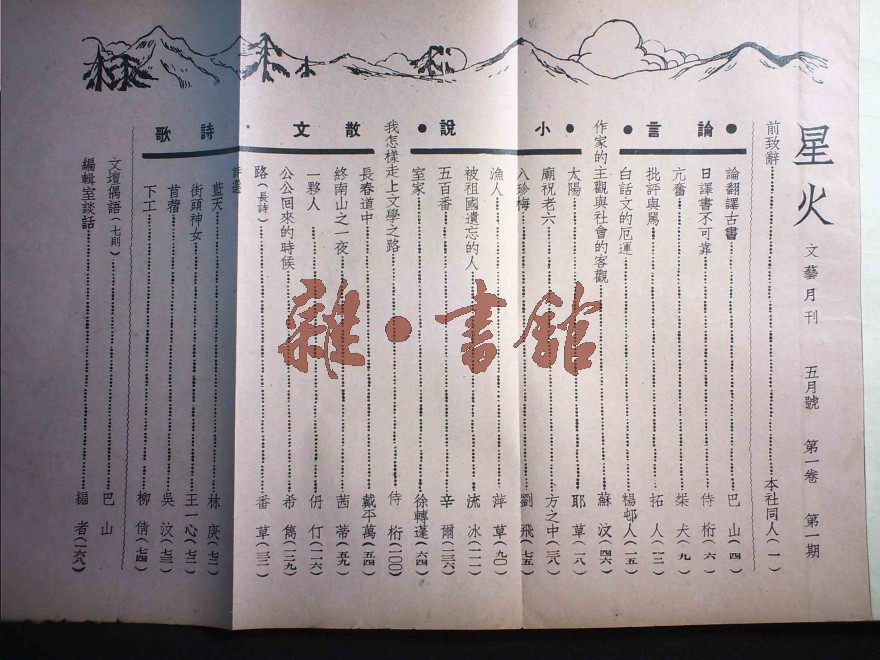 星火 文藝月刊 五月號 第一卷 第一期
前致辭 本社同人(一)
●論言●
論翻譯古書 巴山(四)
日譯書不可靠 侍桁(六)
亢奮 桀犬(九)
批評與罵 拓人(一二)
白話文的厄運 楊邨人(一五)
作家的主觀與社會的客觀 蘇汶(四六)
●小說●
太陽 耶草(一八)
廟祝老六 方之中(三八)
八珍梅 劉飛(七五)
漁人 萍草(九〇)
被祖國遺忘的人 流冰(一一一)
五百番 辛爾(一三六)
室家 徐轉蓬(六四)
我怎樣走上文學之路 侍桁(一〇〇)
散文
長春道中 戴平萬(五四)
終南山之一夜 茜蒂(五九)
一夥人 伢仃(一二六)
公公回來的時候 希雋(一二九)
詩歌
路(長詩) 番草(三二)
詩選
藍天 林庚(七二)
街頭神女 王一心(七二)
苜蓿 吳汶(七三)
下工 柳倩(七四)
文壇偶語(七則) 巴山
編輯室談話 編者(一六八)
雜·書館